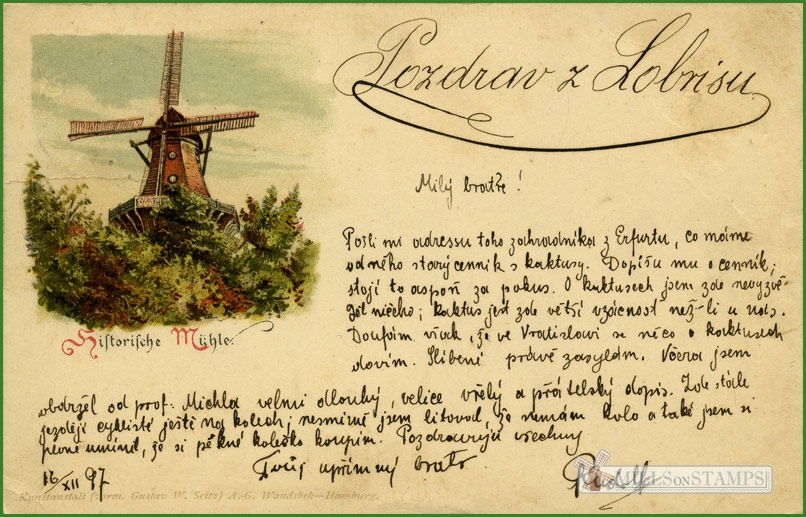 Pozdrav z Lobrisu
Milý bratře!
Pošli mi adressu toho zahradníka z Erfurtu, co máme
od něho starý cenník s kaktusy. Dopíšu mu o cenník;
stojí to aspoň za pokus. O kaktusech jsem zde nevyzvě-
děl ničeho; kaktus jest zde větší vzácnost než-li u nás.
Doufám však, že ve Vratislavi se něco o kaktusech
dovím. Slíbené právě zasylám. Včera jsem
obdržel od prof. Michla velmi dlouhý, velice vřelý a přátelský dopis. Zde stále
jezdějí cyklisté ještě na kolech; nesmírně jsem litoval, že nemám kolo a také jsem si
pevně umínil, že si pěkné kolečko koupím. Pozdravuji všechny
Tvůj upřímný bratr
Rudolf
16/XII 97
Historische Mühle.
Kunstanstalt (vorm. Gustav W. Seitz) A.-G. Wandsbek—Hamburg.
MILLS ON STAMPS